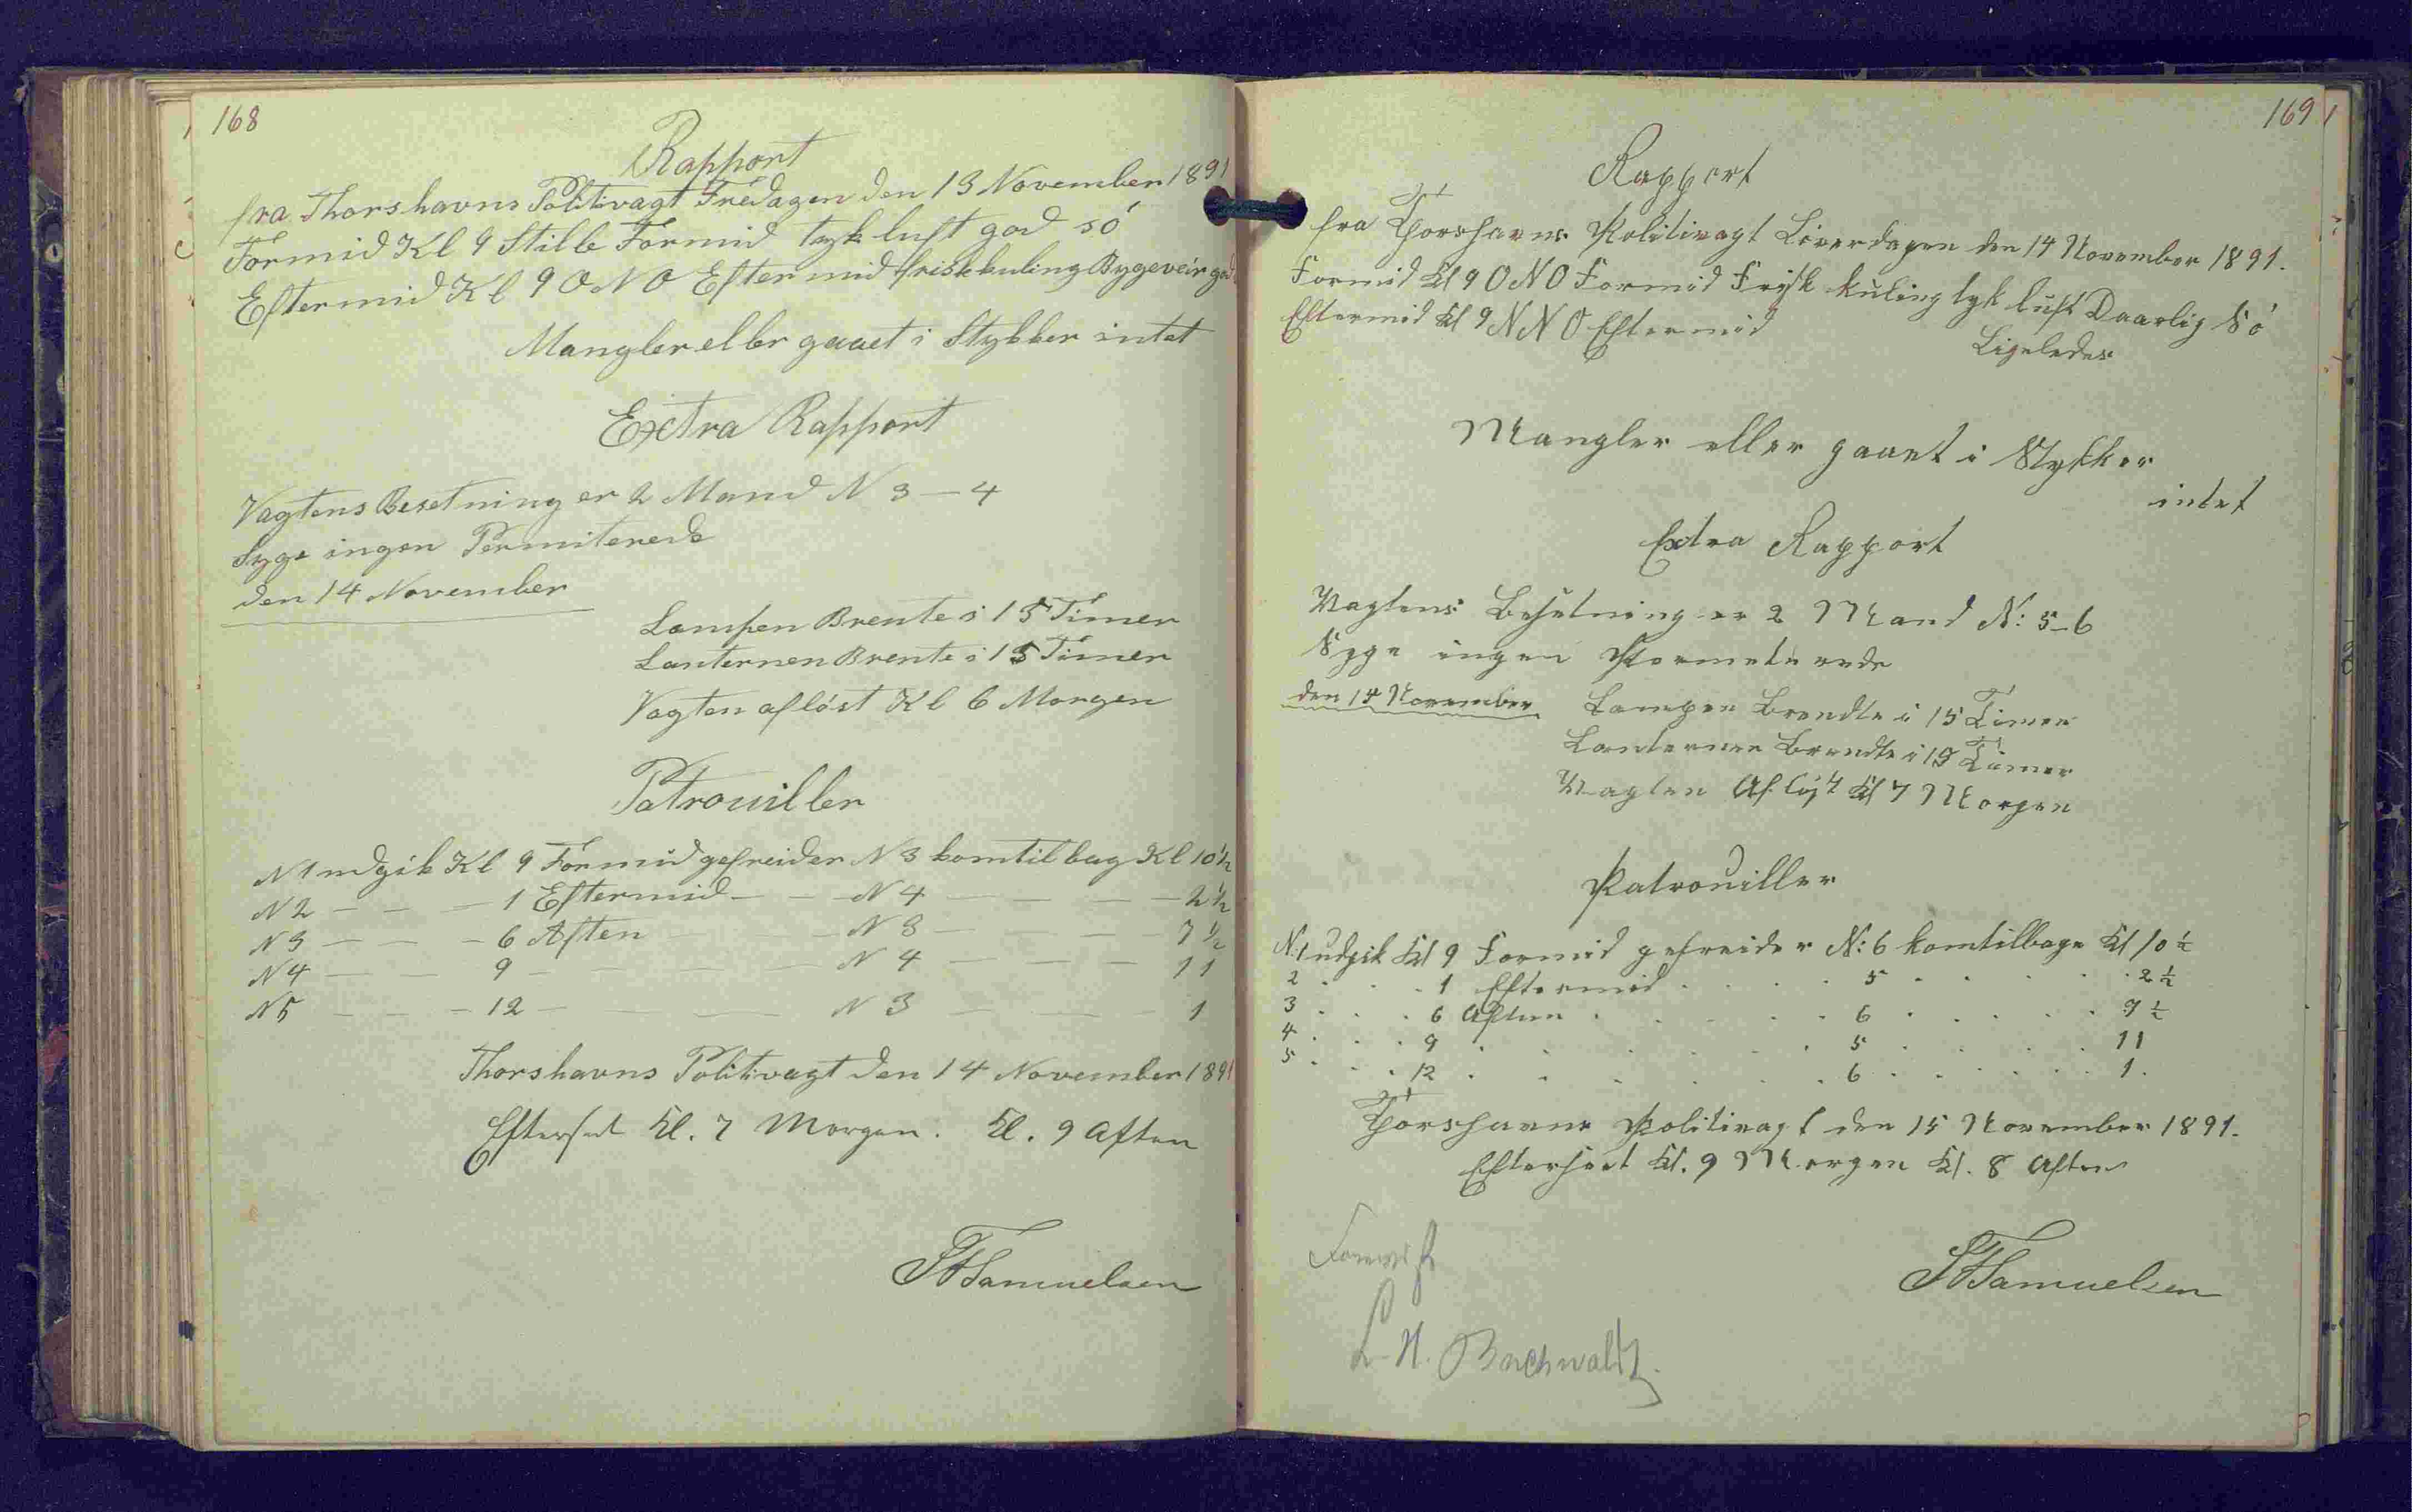 168
Rapport
fra Thorshavns Politivagt Fredagen den 13 November 1891
Formid Kl 9 Stille Formid tyk luft god só
Eftermid Kl 9 ONO Eftermid frisk kuling Bygeveir god
Mangler eller gaaet i Stykker intet
Extra Rapport
Vagtens Besetning er 2 Mand N 3 – 4
Syge ingen Permiterede
den 14 November
Lampen Brente i 15 Timer
Lanternen Brente i 15 Timer
Vagten aflóst Kl 6 Morgen
Patrouiller
N 1 udgik Kl 9 Formid gefreider N 3 kom tilbag Kl 10 1/2
N 2 – – – 1 Eftermid – – N 4 – – – – 2 1/2
N 3 – – – 6 Aften – – N 3 – – – 7 1/2
N 4 – – 9 – – – – N 4 – – – 11
N 5 – – – 12 – – – N 3 – – – 1
Thorshavns Politivagt den 14 November 1891
Efterset Kl. 7 Morgen. Kl. 9 Aften
Samuelsen
169
Rapport
fra Thorshavns Politivagt Löverdagen den 14 November 1891.
Formid Kl 9 ONO Formid Frisk kuling tyk luft Daarlig Só
Eftermid Kl 9 NNO Eftermid Ligeledes
Mangler eller gaaet i Stykker
intet
Extra Rapport
Vagtens Besetning er 2 Mand N: 5–6
Syge ingen Permeterede
den 15 November
Lampen Brendte i 15 Timer
Lanternen Brendte i 15 Timer
Vagten Aflöst Kl 7 Morgen
Patrouiller
N: 1 udgik Kl 9 Formid gefreider N: 6 kom tilbage Kl 10 1/2
2 . . . 1 Eftermid . . . . 5 . . . . 2 1/2
3 . . . 6 Aften . . . . 6 . . . . . 7 1/2
4 . . . 9 . . . . . 5 . . . . 11
5 . . . 12 . . . . . 6 . . . . . 1.
Thorshavns Politivagt den 15 November 1891.
Efterseet Kl. 9 Morgen Kl. 8 Aften
Samuelsen